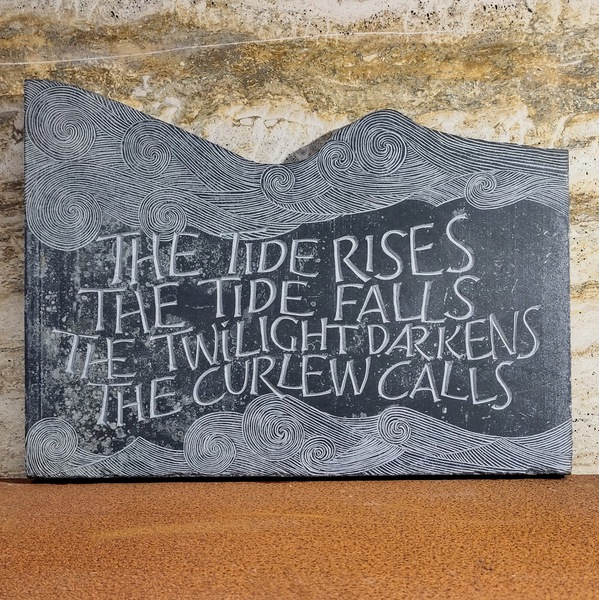 THE TIDE RISES
THE TIDE FALLS
THE TWiLIGHT DARKENS
THE CURLEW CALLS